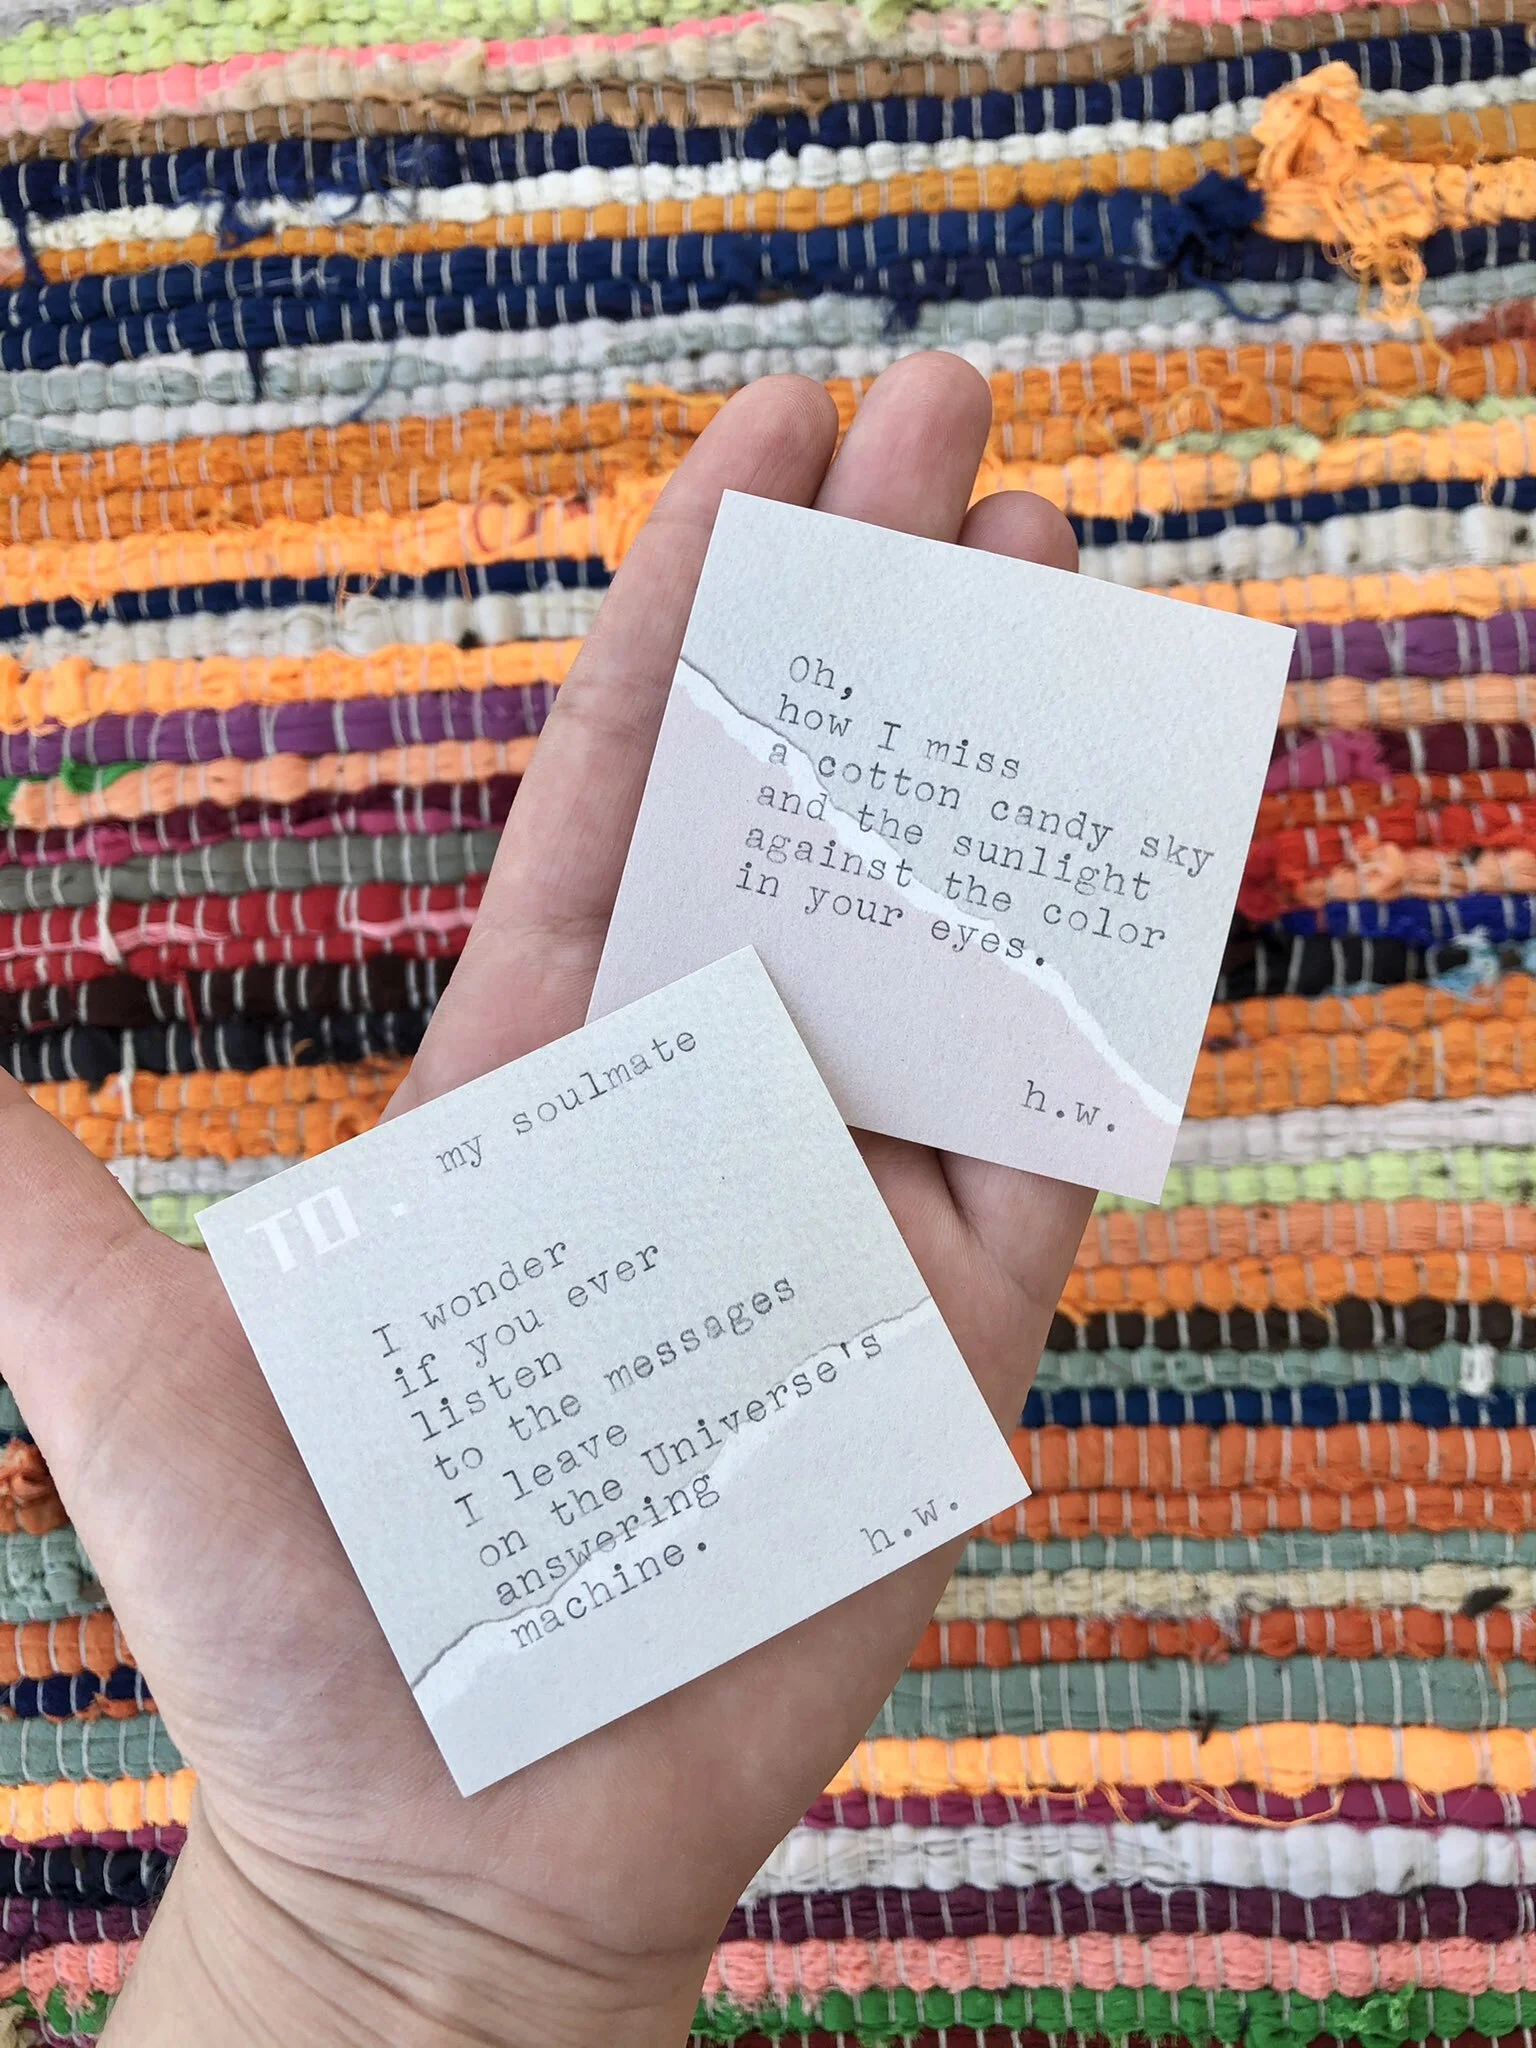 Oh,
how I miss
a cotton candy sky
and the sunlight
against the color
in your eyes.
h.w.
TO. my soulmate
I wonder
if you ever
listen
to the messages
I leave
on the Universe's
answering
machine.
h.w.